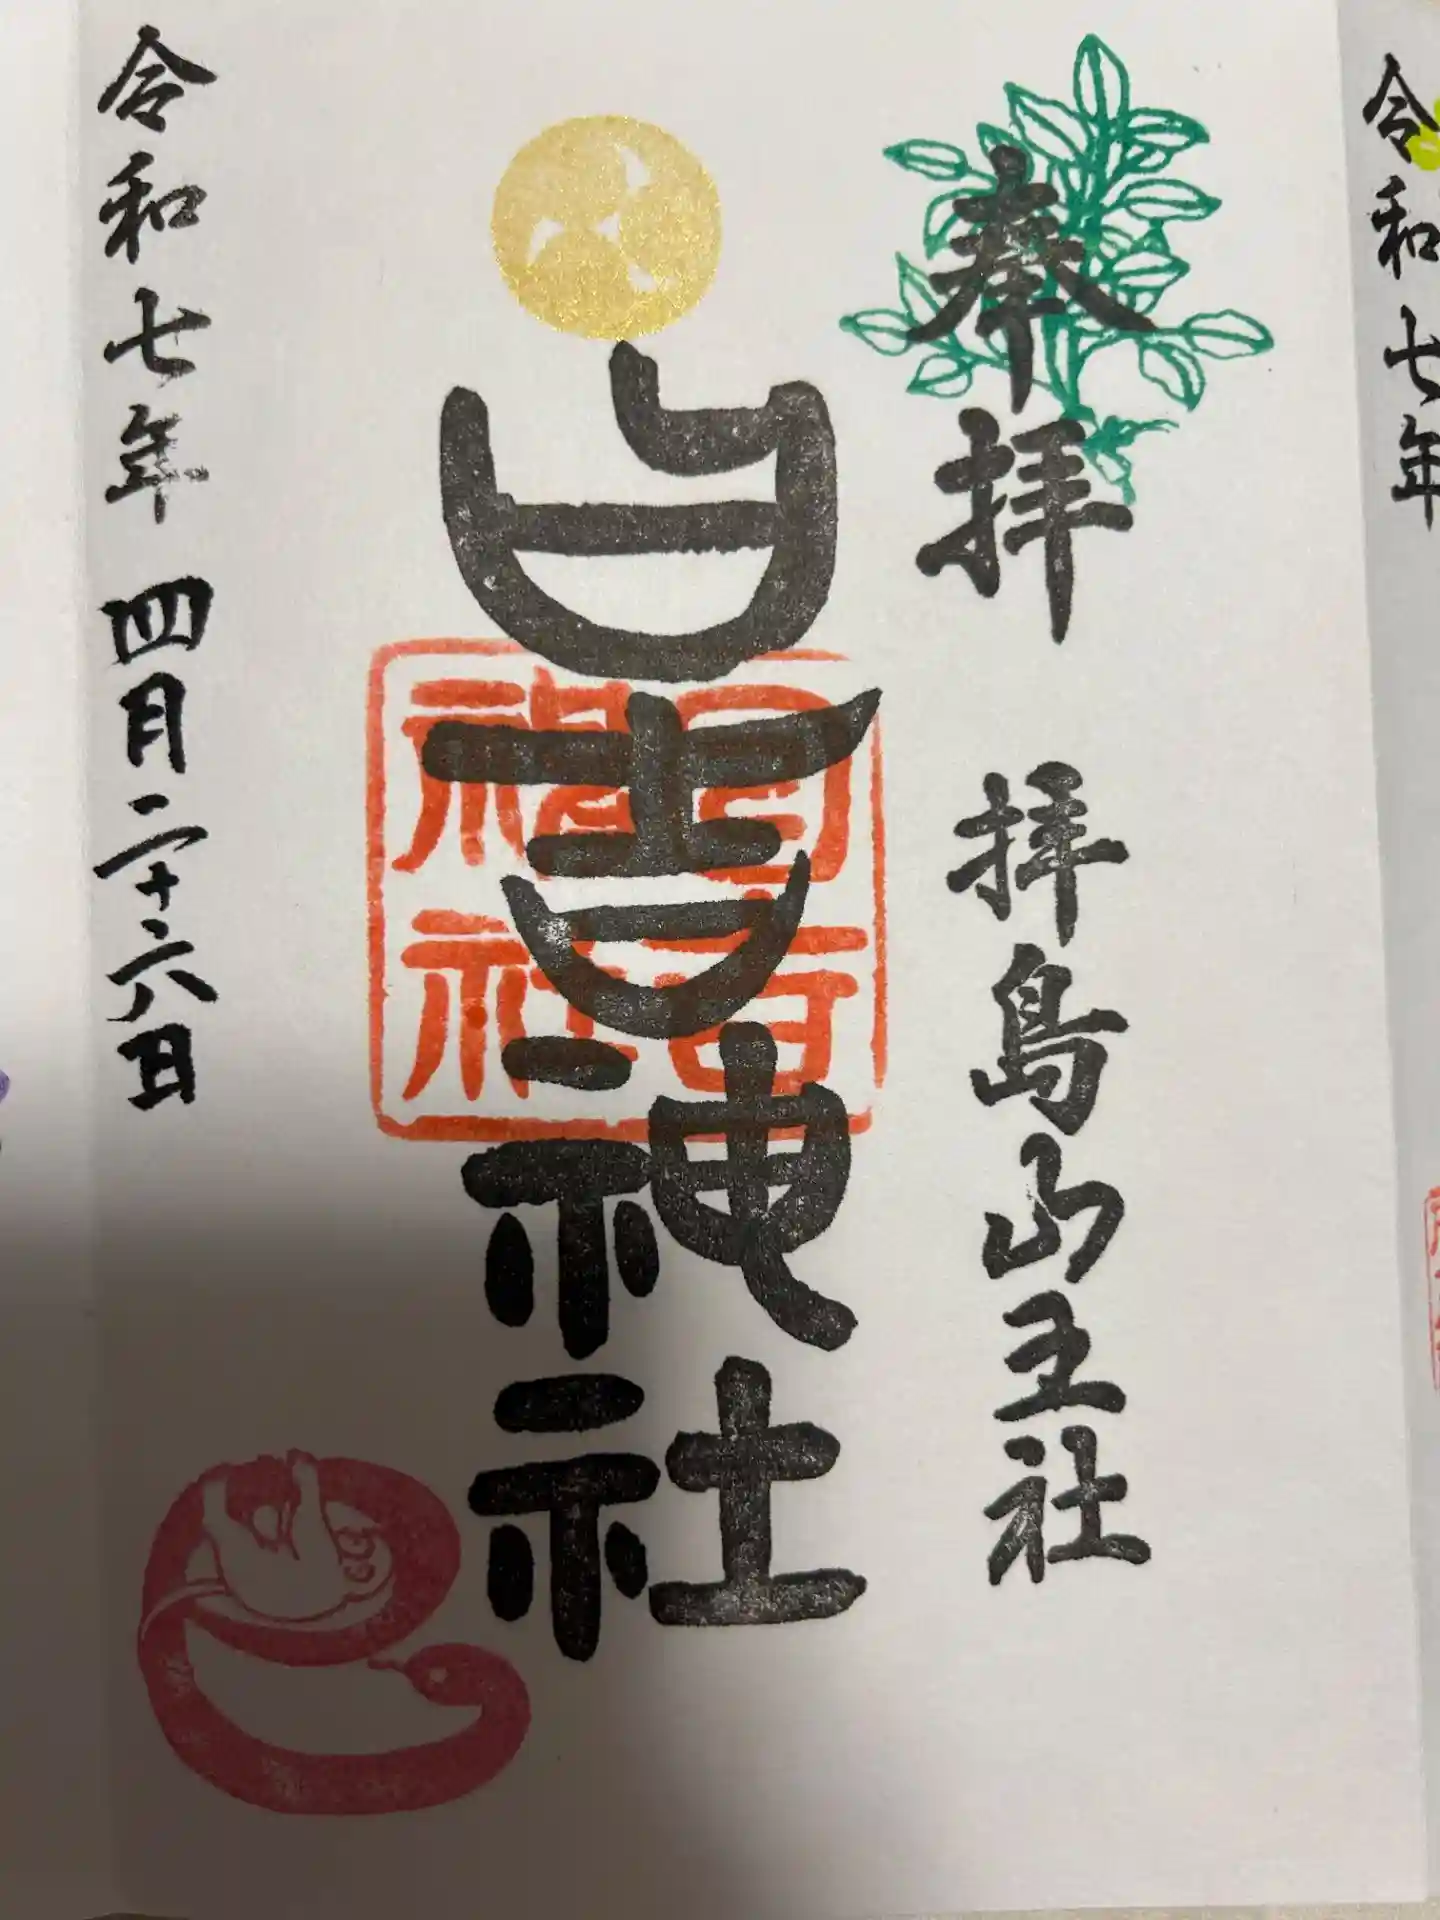 令和七年
奉拝 拝島山王社
日吉神社
日吉
神社
令和七年 四月二十六日